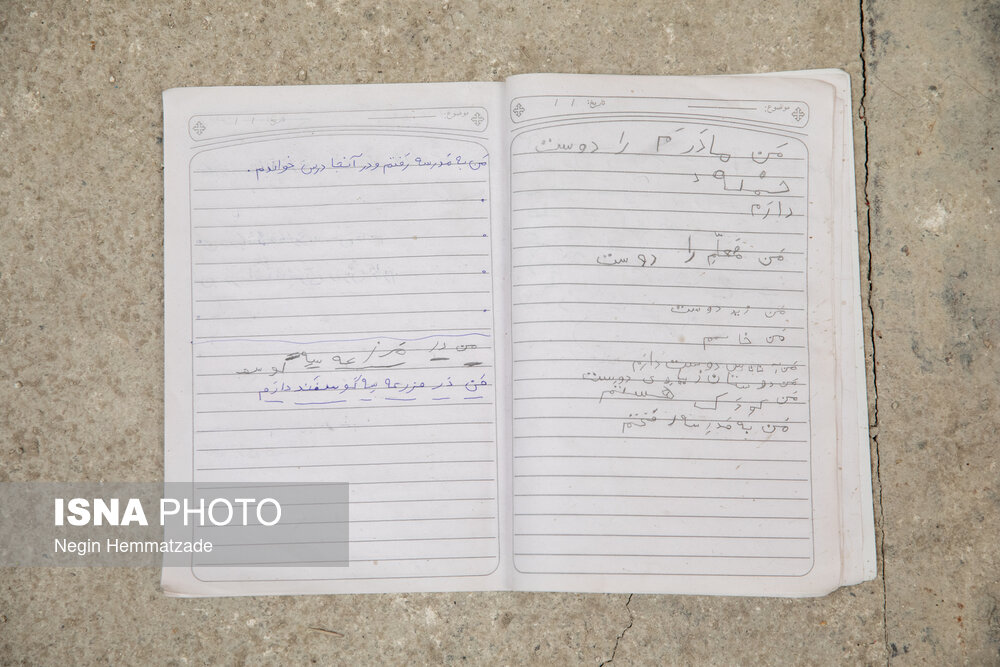 موضوع: تاریخ: / /
من مادرم را دوست
جمله
دارم
من معلم را دوست
من زید دوست
من خا سم
دوست دارم
من دوستان زیادی دوست
من کودک هستم
من به مدرسه رفتم
موضوع: تاریخ: / /
من به مدرسه رفتم و در آنجا درس خواندم .
من در مزرعه سه گوسو
من در مزرعه سه گوسفند دارم
ISNA PHOTO
Negin Hemmatzade